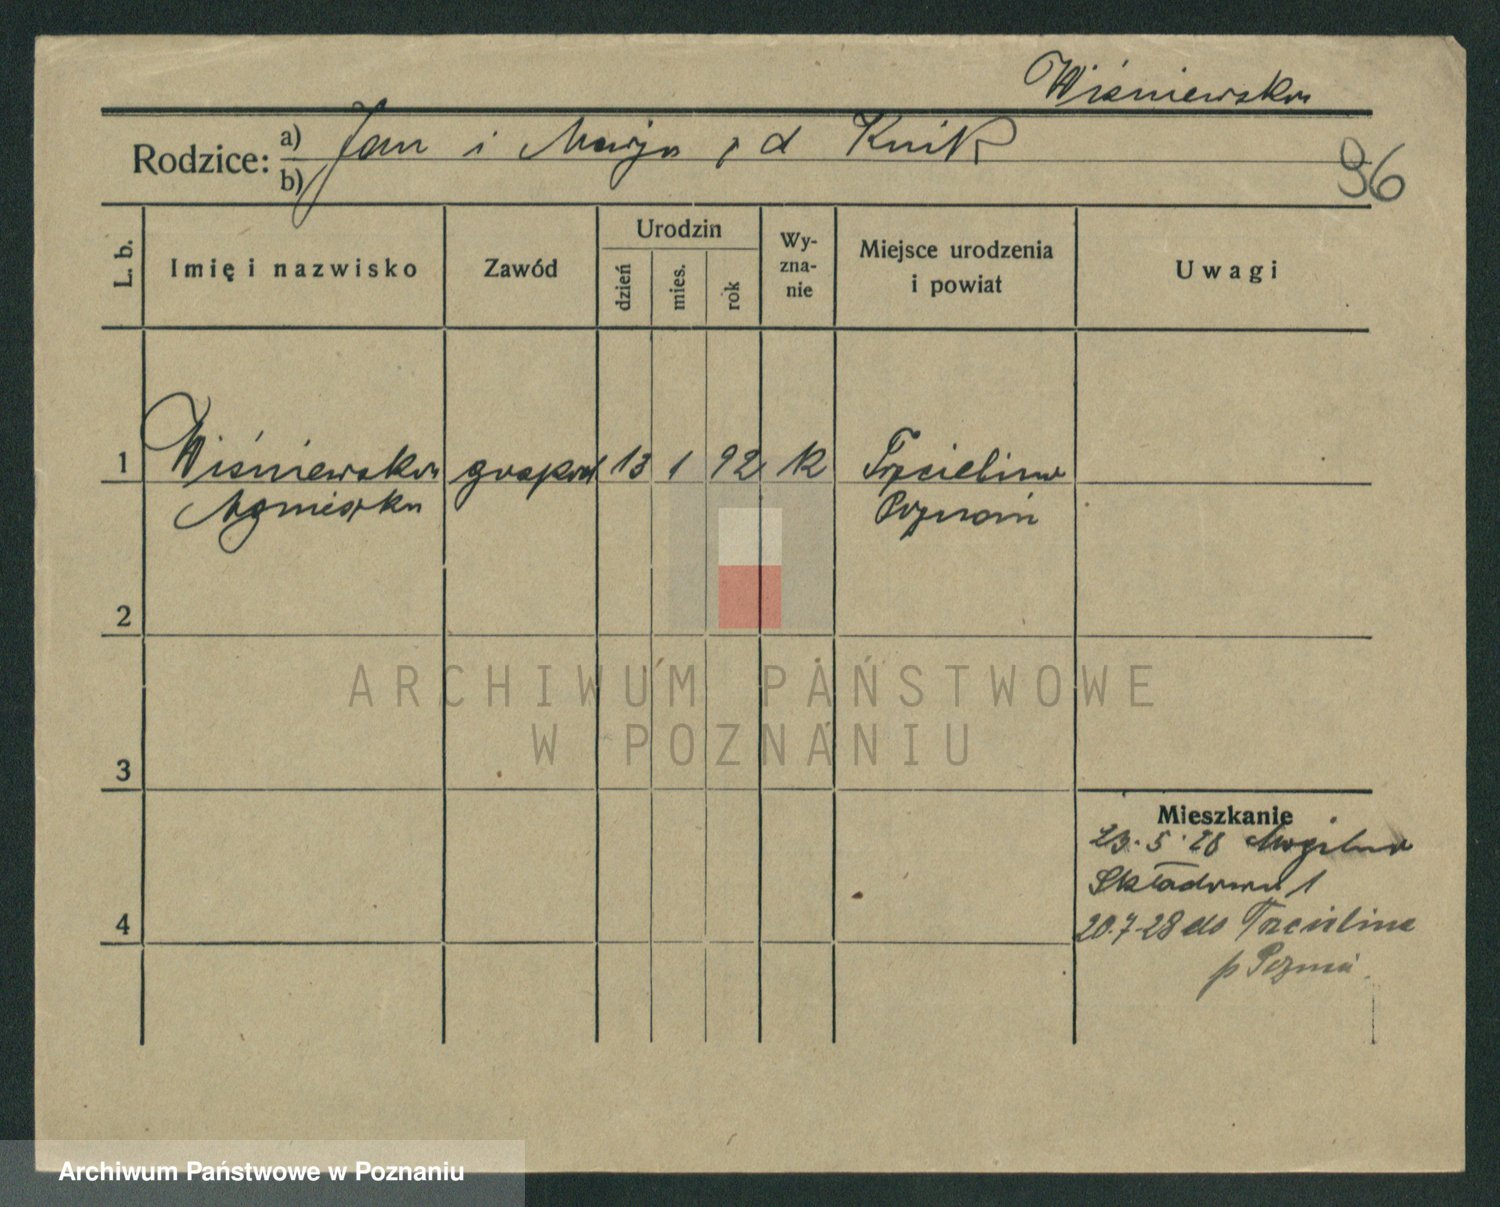 Wiśniewska
Rodzice: a) Jan i Marja z d Knik
b)
96
L. b.
Imię i nazwisko
Zawód
Urodzin
dzień
mies.
rok
Wy-
zna-
nie
Miejsce urodzenia
i powiat
Uwagi
1 Wiśniewska gospod 13 1 92 K Trzcielino
Agnieszka Poznań
2
3
4
ARCHIWUM PAŃSTWOWE
W POZNANIU
Mieszkanie
23.5.28 Mogilno
Składowa 1
20.7.28 do Trzcielina
p Pozna
Archiwum Państwowe w Poznaniu